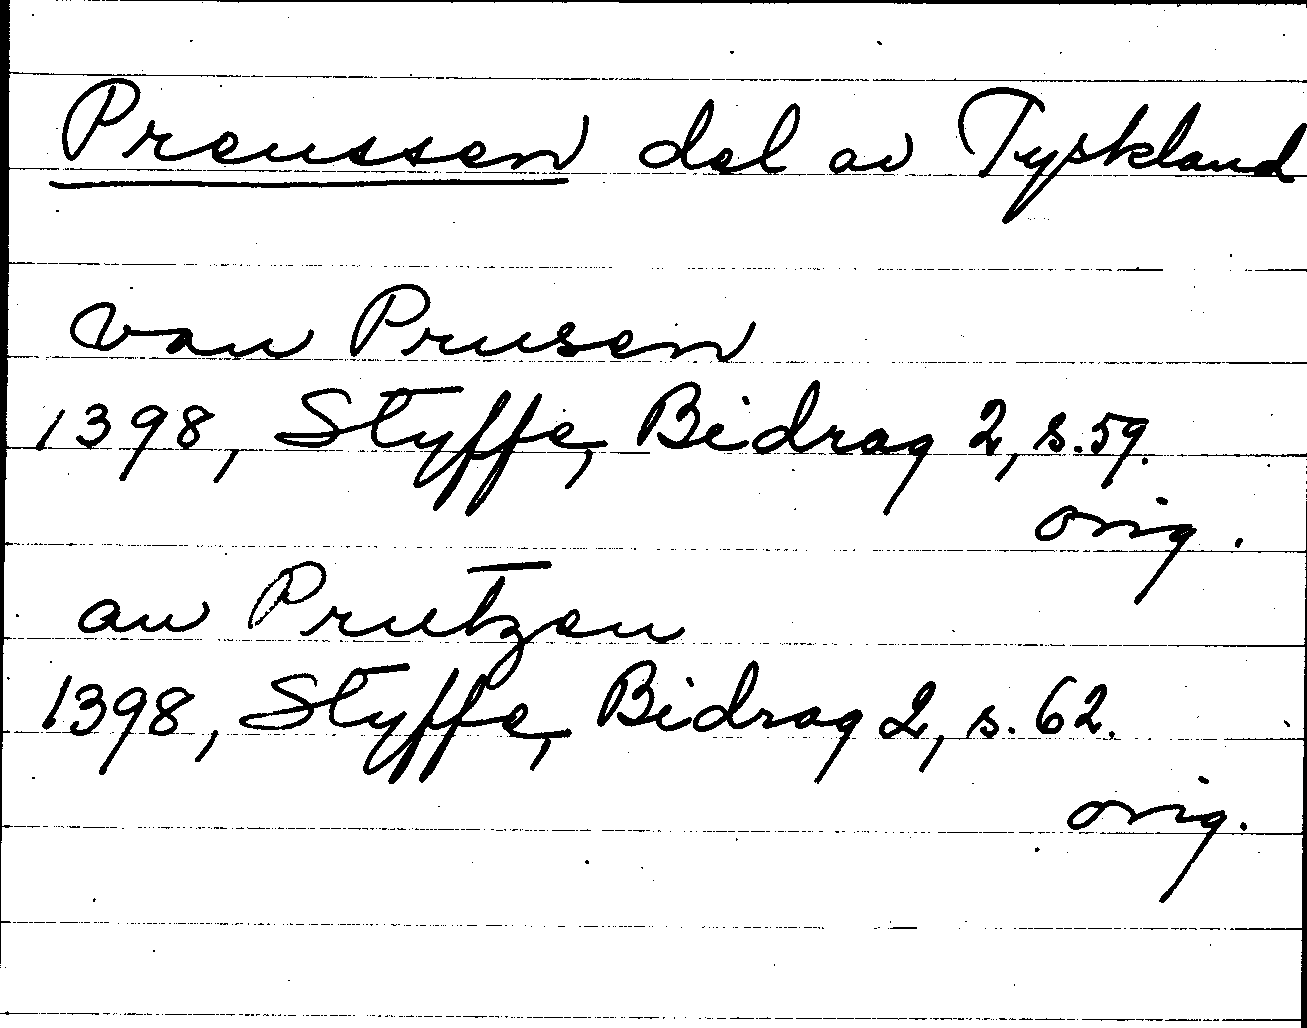 Preussen del av Tyskland
van Prusen
1398, Styffe, Bidrag 2, s. 59.
orig.
an Prutzen
1398, Styffe, Bidrag 2, s. 62.
orig.